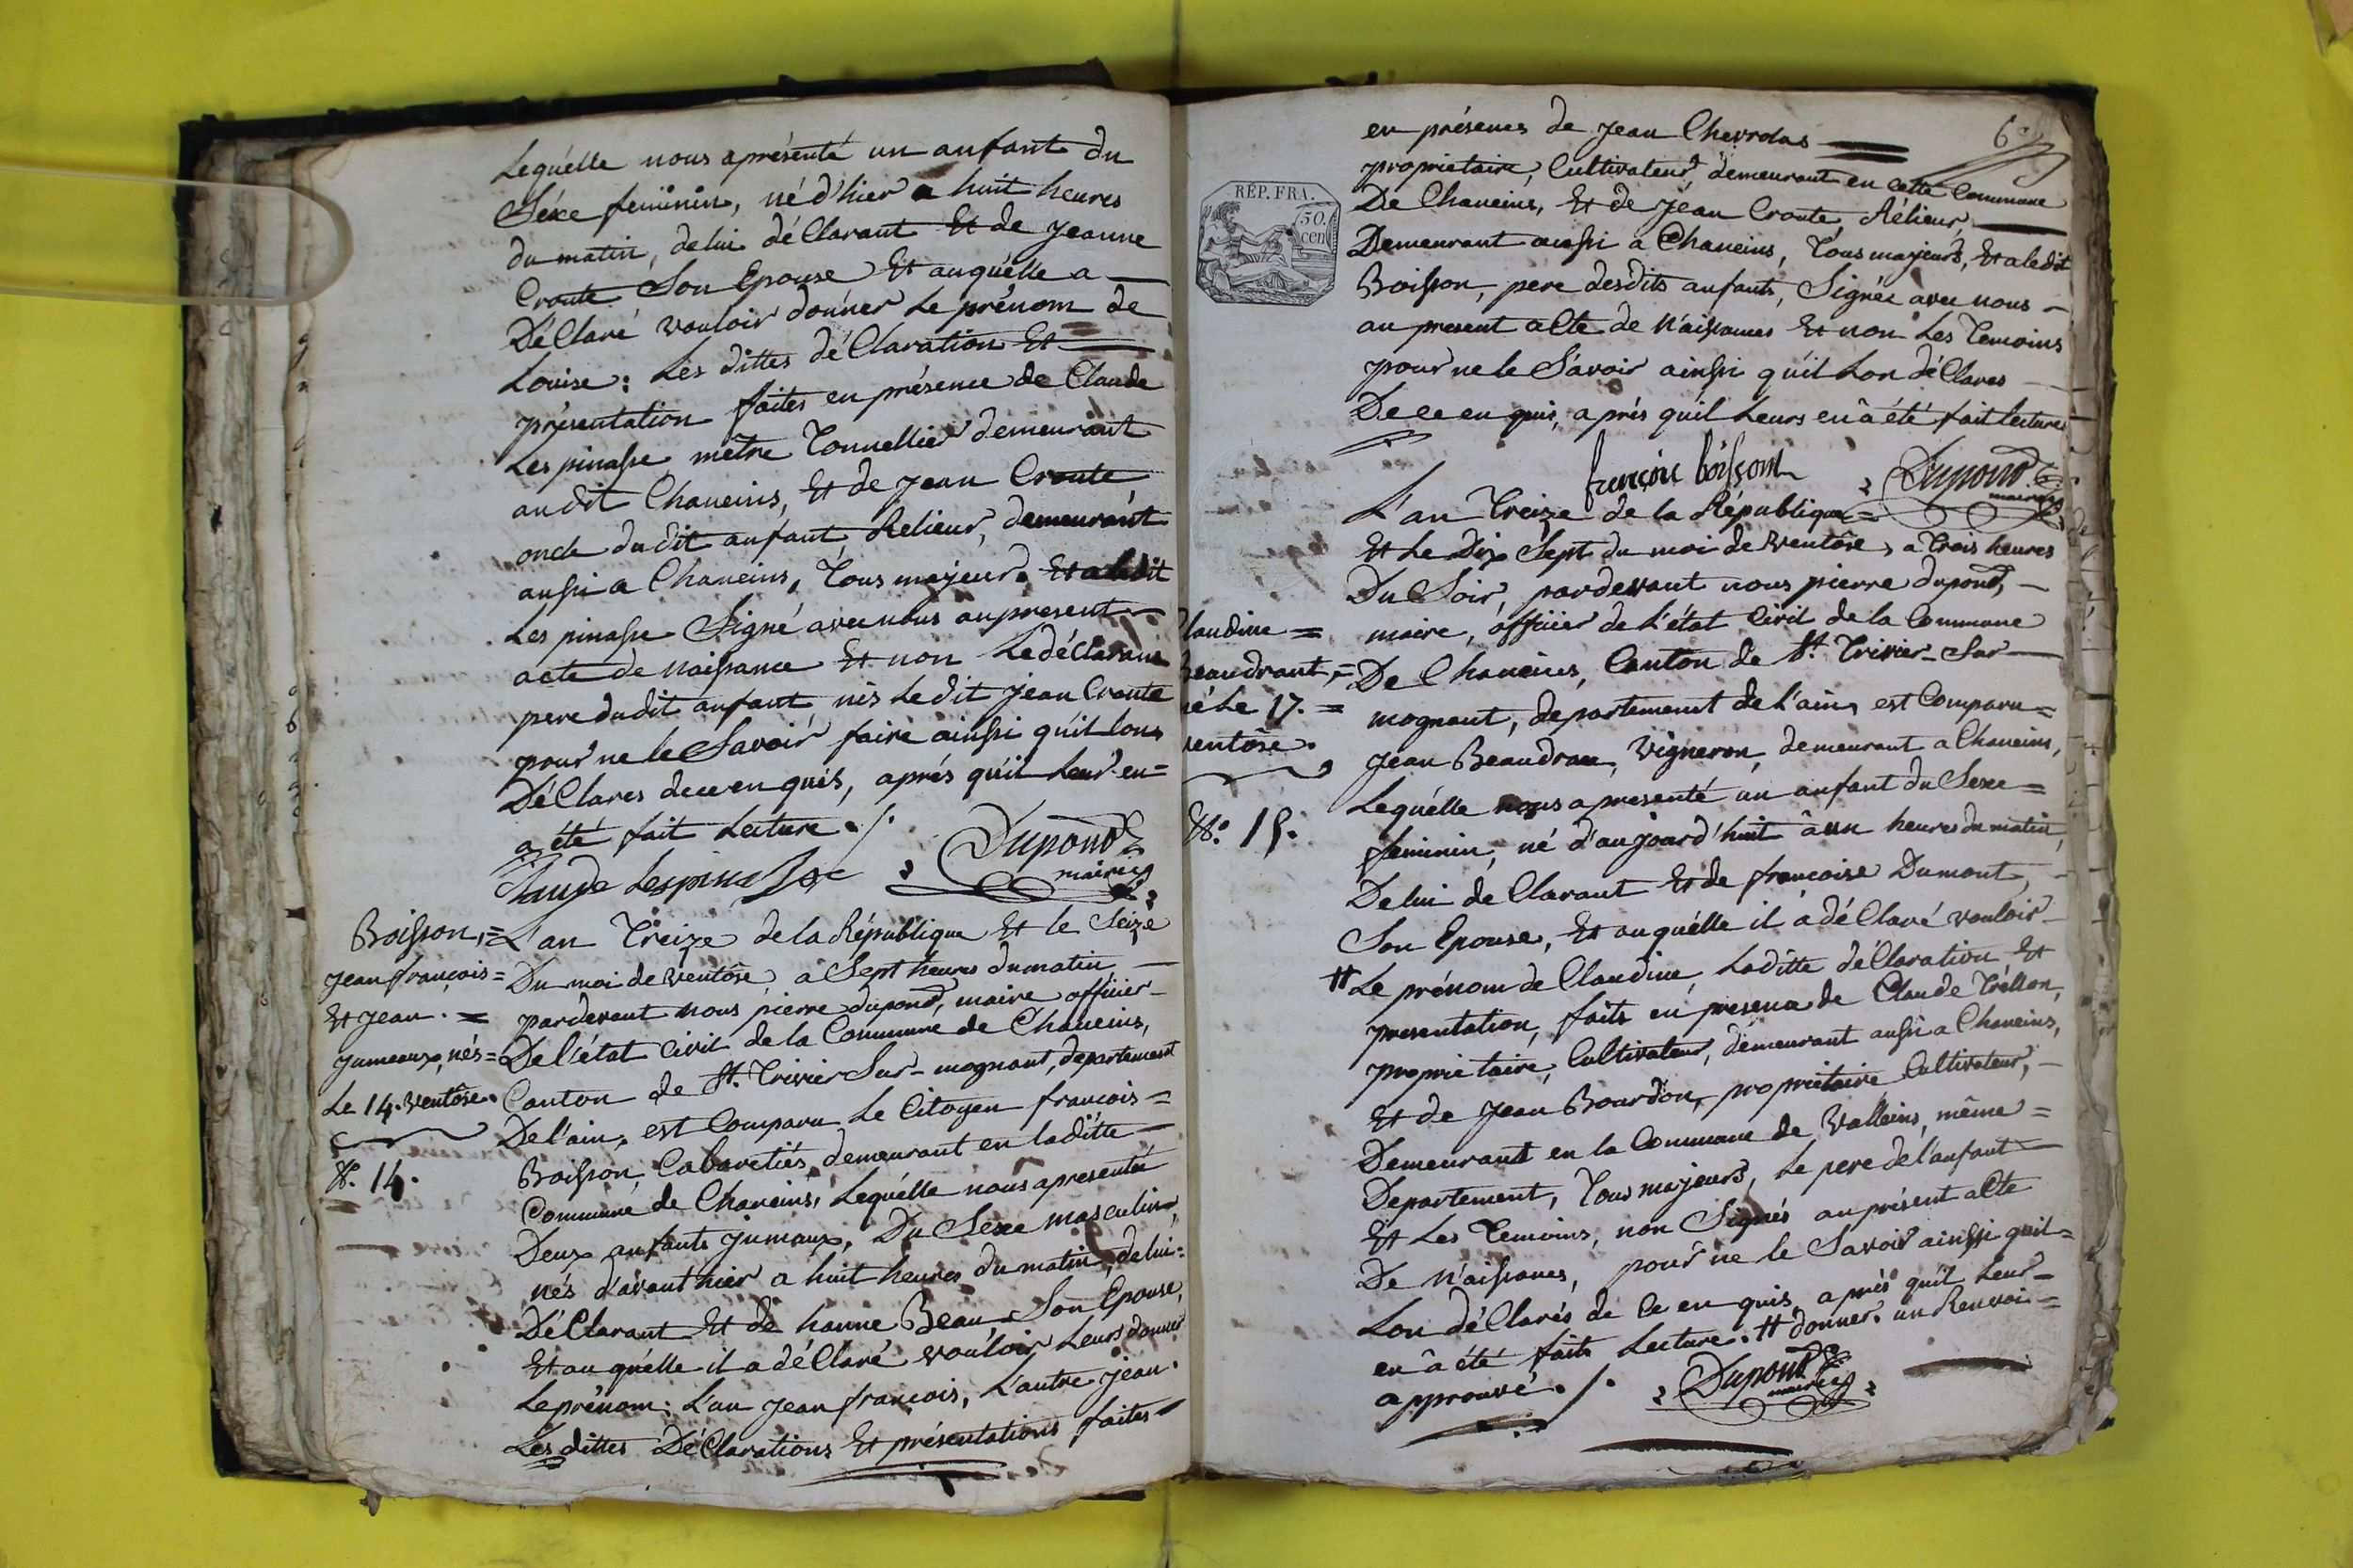 Lequélle nous apresénté un anfant du
Séxe feminin, né d'hier a huit heures
du matin, de lui déClarant Et de jeanne
Croute Son Epouse Et auquélle a
DéClaré vouloir donner Le prénom de
Louise: Les dittes déClaration Et
présentation faites en présence de Claude
Lespinasse mêtre Tonnellier demeurant
audit Chaneins, Et de jean Croute
oncle dudit anfant, Relieur, demeurant
aussi a Chaneins, Tous majeurs. Et a ledit
Lespinasse Signé avec nous au present
acte de Naissance Et non Le déClarant
pere dudit anfant nis Ledit jean Croute
pour ne le Savoir faire ainssi qu'il Lons
DéClares de ce en quis, aprés qu'il Leur en=
a été fait Lecture ./.
Claude Lespinasse Dupond
maire
Boisson,=
jean françois=
Et jean. =
jumeaux, nés=
Le 14. ventôse.
N. 14.
L'an Treize de la République Et le Seize
Du moi de ventôse, a Sept heures du matin
pardevant nous pierre dupond, maire officier
De l'état Civil de la Commune de Chaneins,
Canton de St. Trivier Sur-mognant, departement
De l'ain, est Comparu Le Citoyen francois=
Boisson, Cabaretiés, demeurant en laditte
Commune de Chaneins, Lequélle nous apresenté
Deux anfants jumaux, Du Sexe masculin,
nés d'avant hier a huit heures du matin, de lui=
DéClarant Et de hanne Beau Son Epouse,
Et au quélle il a déClaré vouloir Leurs donner
Le prénom: L'un jean françois, L'autre jean.
Les dittes DéClarations Et présentations faites
6e
REP. FRA.
50. cen
en présences de jean Chevrolas
propriétaire, Cultivateur, demeurant en cette Commune
De Chaneins, Et de jean Croute, Rélieur,
Demeurant aussi a Chaneins, Tous majeurs, Et a ledit
Boisson, pere desdits anfants, Signés avec nous
au present aCte de Naissances Et non Les Temoins
pour ne le Savoir ainssi qu'il Lon déClares
De ce en quis, aprés qu'il Leurs en à été fait lecture
françoi boisson Dupond
maire
laudine =
Beaudrant,=
né Le 17. =
ventôse.
N.o 15.
L'an Treize de la République=
Et Le Dix Sept du moi de ventôse, a Trois heures
Du Soir, pardevant nous pierre dupond,
maire, officier de L'état Civil de la Commune
De Chaneins, Canton de St. Trivier-Sur
mognant, departement de l'ain, est Comparu=
jean Beaudran, Vigneron, demeurant a Chaneins,
Lequélle nous apresenté un anfant du Sexe=
feminin, né d'aujourd'huit â un heures du matin,
De lui de Clarant Et de françoise Dumont,
Son Epouse, Et auquélle il a déClaré vouloir
# Le prénom de Claudine, Laditte déClaration Et
presentation, faits en présence de Claude Tréllon,
propriétaire, Cultivateur, demeurant aussi a Chaneins,
Et de jean Bourdon, propriétaire Cultivateur,
Demeurant en la Commune de Valleins, même=
Departement, Tous majeurs, Le pere de l'anfant
Et Les Temoins, non Signés au présent aCte
De Naissances, pour ne le Savoir ainssi quil=
Lon déClarés de Ce en quis, aprés qu'il Leur
en â été faits Lecture. # donner. un Renvoi=
approuvé. /. Dupond
maire